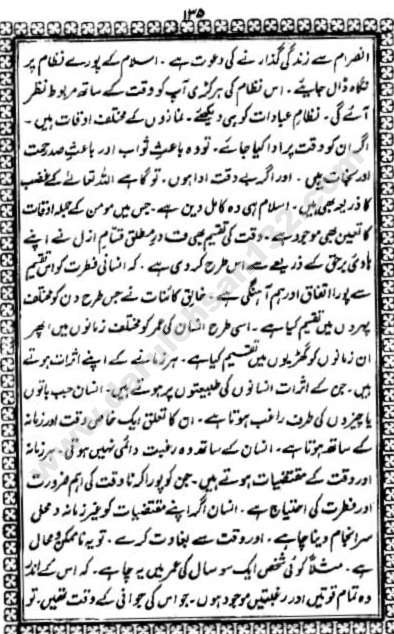 ۱۳۵
انصرام سے زندگی گذارنے کی دعوت ہے۔ اسلام کے پورے نظام پر
نگاہ ڈال جایئے۔ اس نظام کی ہر کڑی آپ کو وقت کے ساتھ مربوط نظر
آئے گی۔ نظامِ عبادات کو ہی دیکھئے۔ نمازوں کے مختلف اوقات ہیں۔
اگر ان کو وقت پر ادا کیا جائے۔ تو وہ باعثِ ثواب اور باعثِ صد حجت
اور نجات ہیں۔ اور اگر بے وقت ادا ہوں۔ تو گاہے اللہ تعالےٰ کے غضب
کا ذریعہ بھی ہیں۔ اسلام ہی وہ کامل دین ہے۔ جس میں مومن کے جملہ اوقات
کا تعین بھی موجود ہے۔ وقت کی تقسیم بھی قادرِ مطلق قسامِ ازل نے اپنے
ہادیٔ برحق کے ذریعے سے اس طرح کر دی ہے۔ کہ انسانی فطرت کو اس تقسیم
سے پورا اتفاق اور ہم آہنگی ہے۔ خالقِ کائنات نے جس طرح دن کو مختلف
پہروں میں تقسیم کیا ہے۔ اسی طرح انسان کی عمر کو مختلف زمانوں میں پھر
ان زمانوں کو گھڑیوں میں تقسیم کیا ہے۔ ہر زمانے کے اپنے اثرات ہوتے
ہیں۔ جن کے اثرات انسانوں کی طبیعتوں پر ہوتے ہیں۔ انسان جب باتوں
یا چیزوں کی طرف راغب ہوتا ہے۔ ان کا تعلق ایک خاص وقت اور زمانہ
کے ساتھ ہوتا ہے۔ انسان کے ساتھ وہ رغبت دائمی نہیں ہوتی۔ ہر زمانہ
اور وقت کے مقتضیات ہوتے ہیں۔ جن کو پورا کرنا وقت کی اہم ضرورت
اور فطرت کی احتیاج ہے۔ انسان اگر اپنے مقتضیات کو بغیر زمانہ و محل
سرانجام دینا چاہے۔ اور وقت سے بغاوت کرے۔ تو یہ ناممکن و محال
ہے۔ مثلاً کوئی شخص ایک سو سال کی عمر میں یہ چاہے۔ کہ اس کے اندر
وہ تمام قوتیں اور رغبتیں موجود ہوں۔ جو اس کی جوانی کے وقت تھیں۔ تو